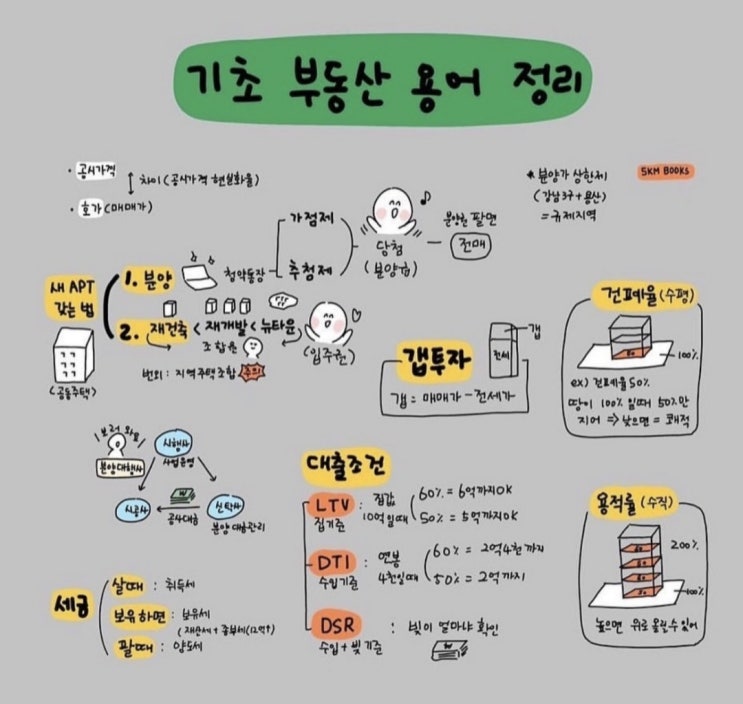 기초 부동산 용어 정리
· 공시가격
차이(공시가격 현실화율)
· 호가(매매가)
* 분양가 상한제
(강남3구+용산)
= 규제지역
5KM BOOKS
새 APT
갖는 법
<공동주택>
1. 분양
청약통장
가점제
추첨제
당첨
(분양권)
분양권 팔면
전매
2. 재건축 < 재개발 < 뉴타운
조합원
(입주권)
번외 : 지역주택조합 주의
갭투자
갭
전세
갭 = 매매가 - 전세가
건폐율 (수평)
50
100%
ex) 건폐율 50%
땅이 100% 일때 50%만
지어 => 낮으면 = 쾌적
보러 와요
분양대행사
시행사
사업운영
시공사
공사대금
신탁사
분양 대금관리
대출조건
LTV : 집값
집기준 10억일때
60% = 6억까지OK
50% = 5억까지OK
DTI : 연봉
수입기준 4천일때
60% = 2억4천까지
50% = 2억까지
DSR : 빚이 얼마냐 확인
수입 + 빚 기준
용적률 (수직)
200%
50
50
50
50
100%
높으면 위로 올릴 수 있어
세금
살때 : 취득세
보유하면 : 보유세
(재산세 + 종부세(12억↑)
팔때 : 양도세